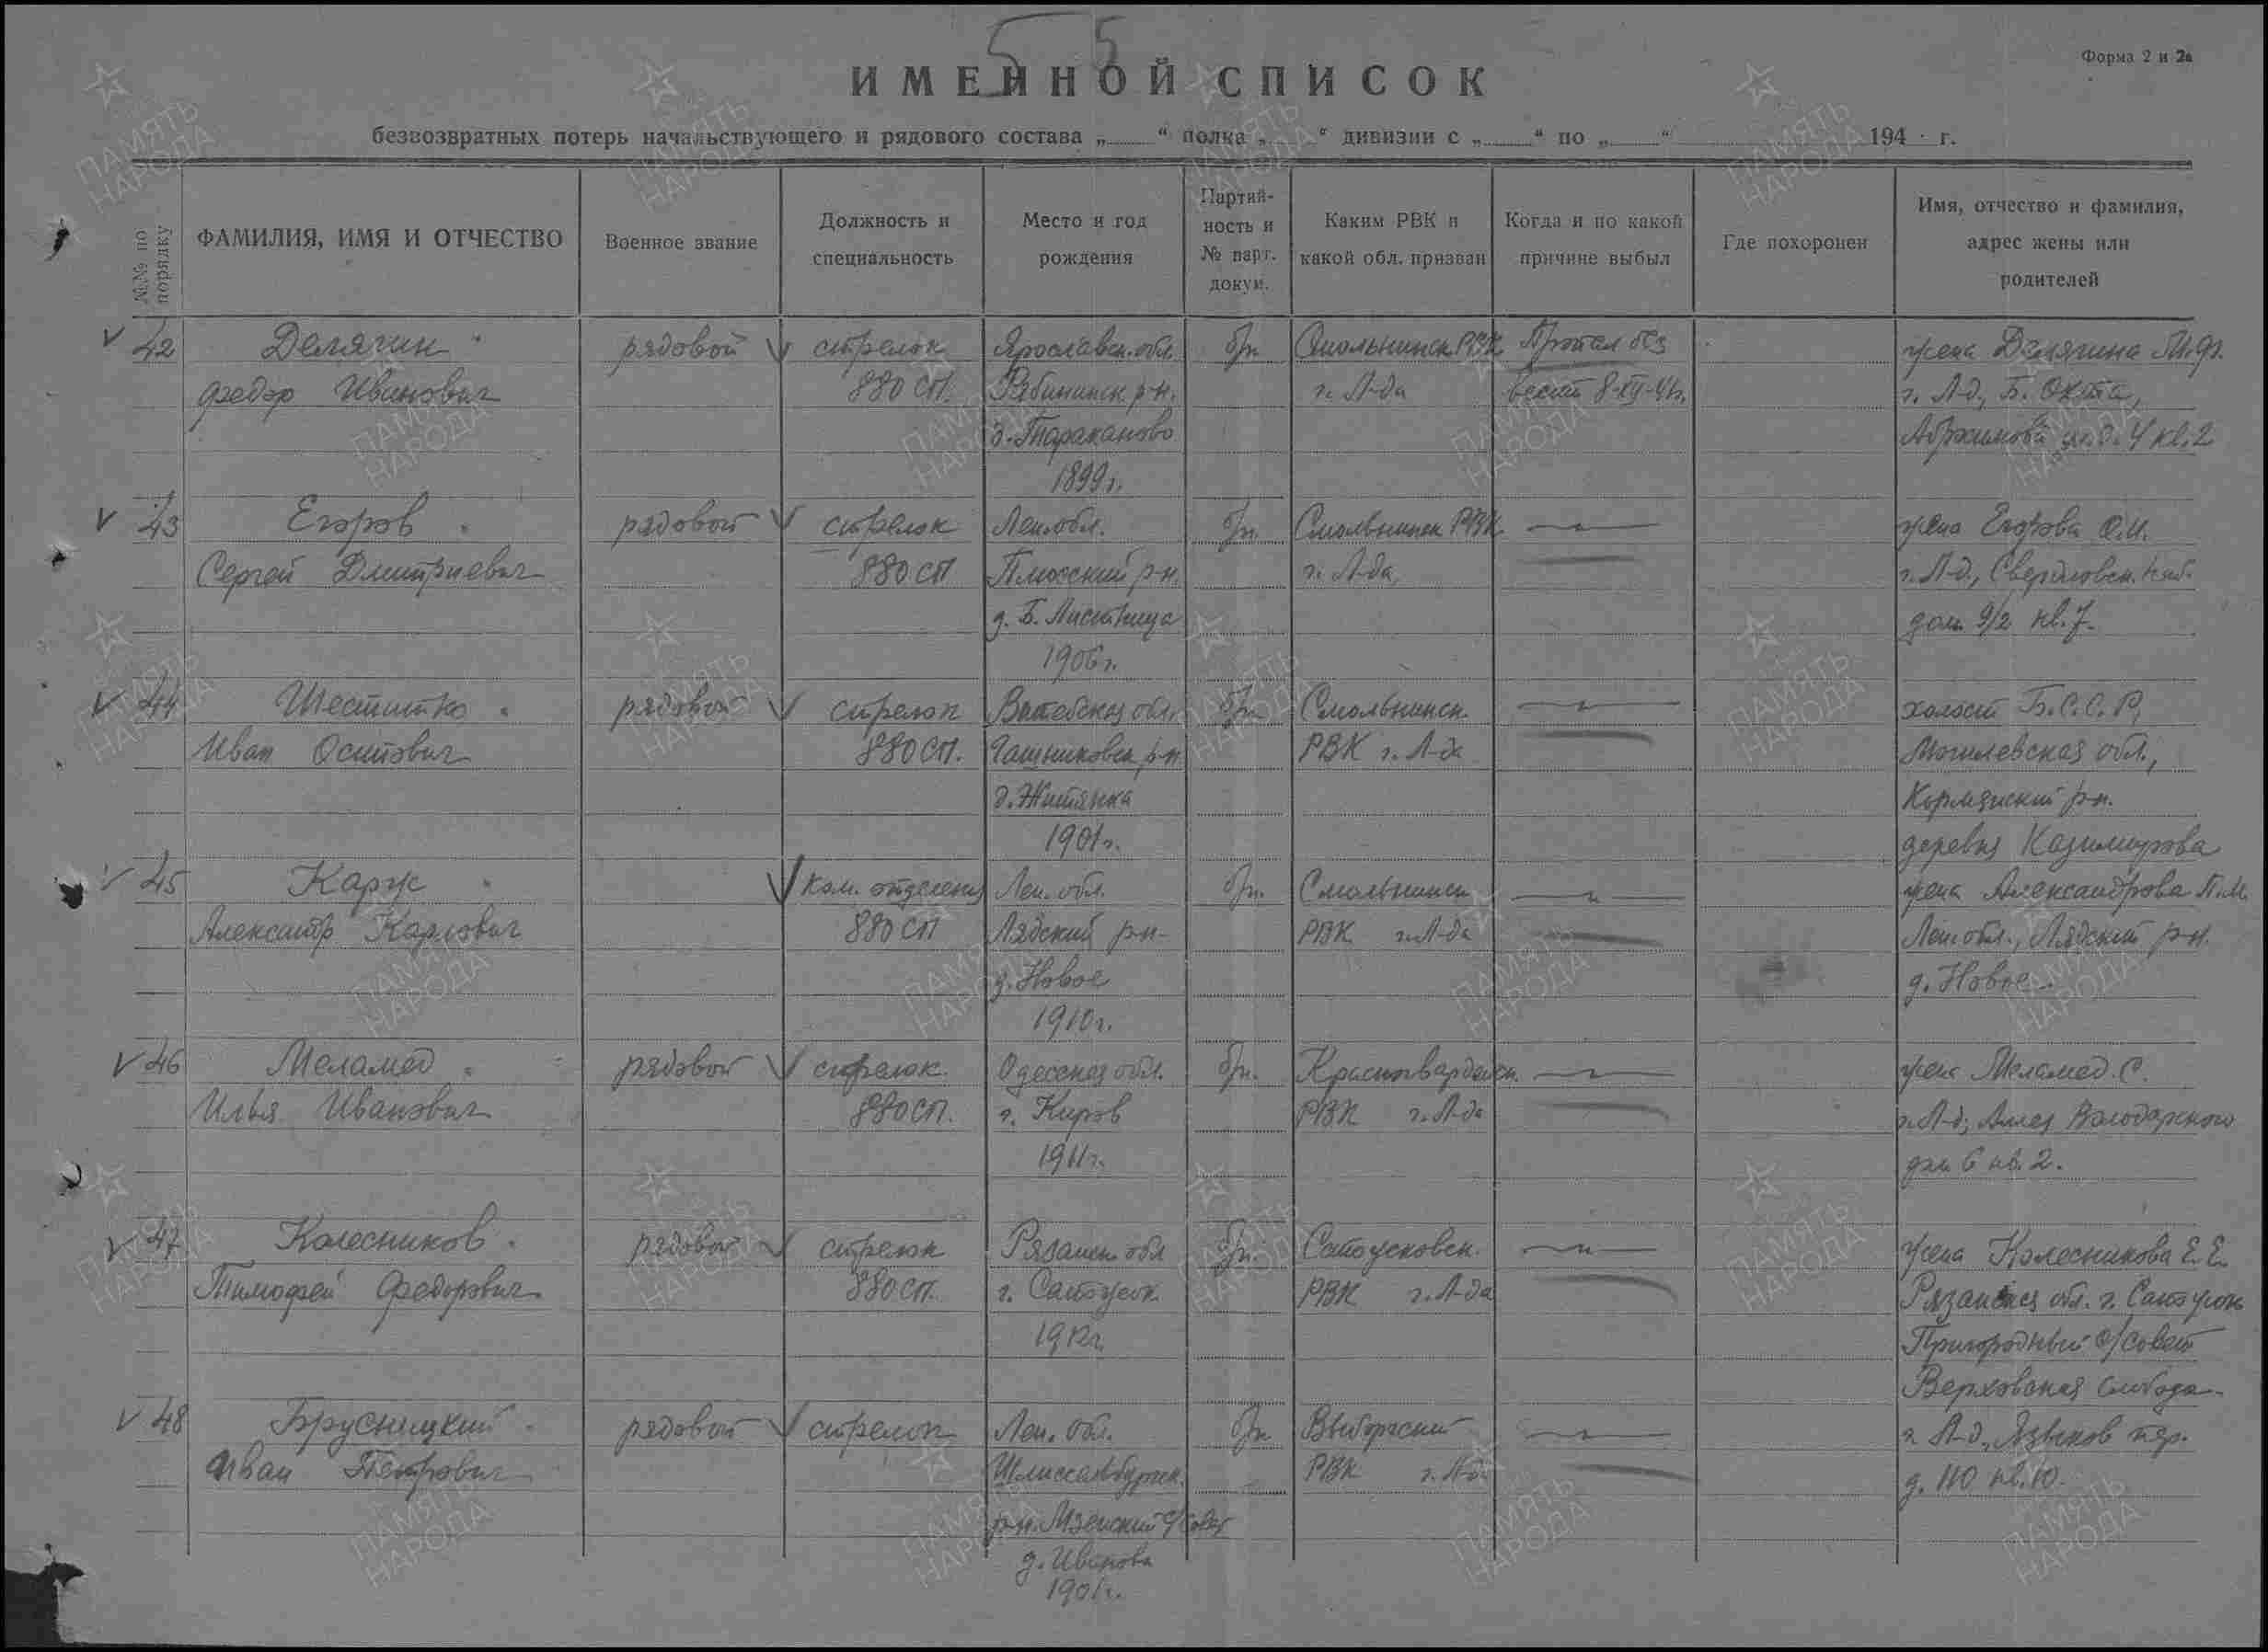 55
Форма 2 и 2а
ИМЕННОЙ СПИСОК
безвозвратных потерь начальствующего и рядового состава „ “ полка „ “ дивизии с „ “ по „ “ 194 г.
№№ по порядку
ФАМИЛИЯ, ИМЯ И ОТЧЕСТВО
Военное звание
Должность и специальность
Место и год рождения
Партийность и № парт. докум.
Каким РВК и какой обл. призван
Когда и по какой причине выбыл
Где похоронен
Имя, отчество и фамилия, адрес жены или родителей
42 Делягин рядовой стрелок Ярославск. обл. б/п Смольнинск РВК Пропал без жена Делягина М.Ф.
Федор Иванович 880 СП. Рыбининск р-н. г. Л-да вести 8-XII-41г. г. Л-д, Б. Охта,
д. Тараканово д. 4 кв. 2
1899г.
43 Егоров рядовой стрелок Лен. обл. б/п. Смольнинск РВК —„— жена Егорова О.И.
Сергей Дмитриевич 880 СП Плюсский р-н. г. Л-да, г. Л-д., Свердловск. наб.
д. Б. Листвица дом 9/2 кв. 7.
1906г.
44 Шеститко рядовой стрелок Витебская обл. б/п Смольнинск. —„— холост Б.С.С.Р,
Иван Осипович 880 СП. Чашниковск. р-н РВК г. Л-да Могилевская обл.,
д. Житянка Кормянский р-н.
1901г. деревня Казимирова
45 Карус Ком. отделения Лен. обл. б/п. Смольнинск —„— жена Александрова П.М.
Александр Карлович 880 СП Лядский р-н РВК г. Л-да Лен. обл., Лядский р-н.
д. Новое д. Новое.
1910г.
46 Меламед рядовой стрелок Одесская обл. б/п. Красногвардейск. —„— жена Меламед С.
Илья Иванович 880 СП. г. Киров РВК г. Л-да г. Л-д, Аллея Володарского
1911г. дом 6 кв. 2.
47 Колесников рядовой стрелок Рязанск. обл б/п. Сапожковск. —„— жена Колесникова Е.Е.
Тимофей Федорович 880 СП. г. Сапожок РВК г. Л-да Рязанская обл. г. Сапожок
1912г. Пригородный с/совет
Верховская слобода
48 Брусницкий рядовой стрелок Лен. обл. б/п Выборгский —„— г. Л-д, Языков пер.
Иван Петрович Шлиссельбургск. РВК г. Л-да д. 110 кв. 10.
р-н. Мгенский с/совет
д. Иванова
1901г.
ПАМЯТЬ НАРОДА